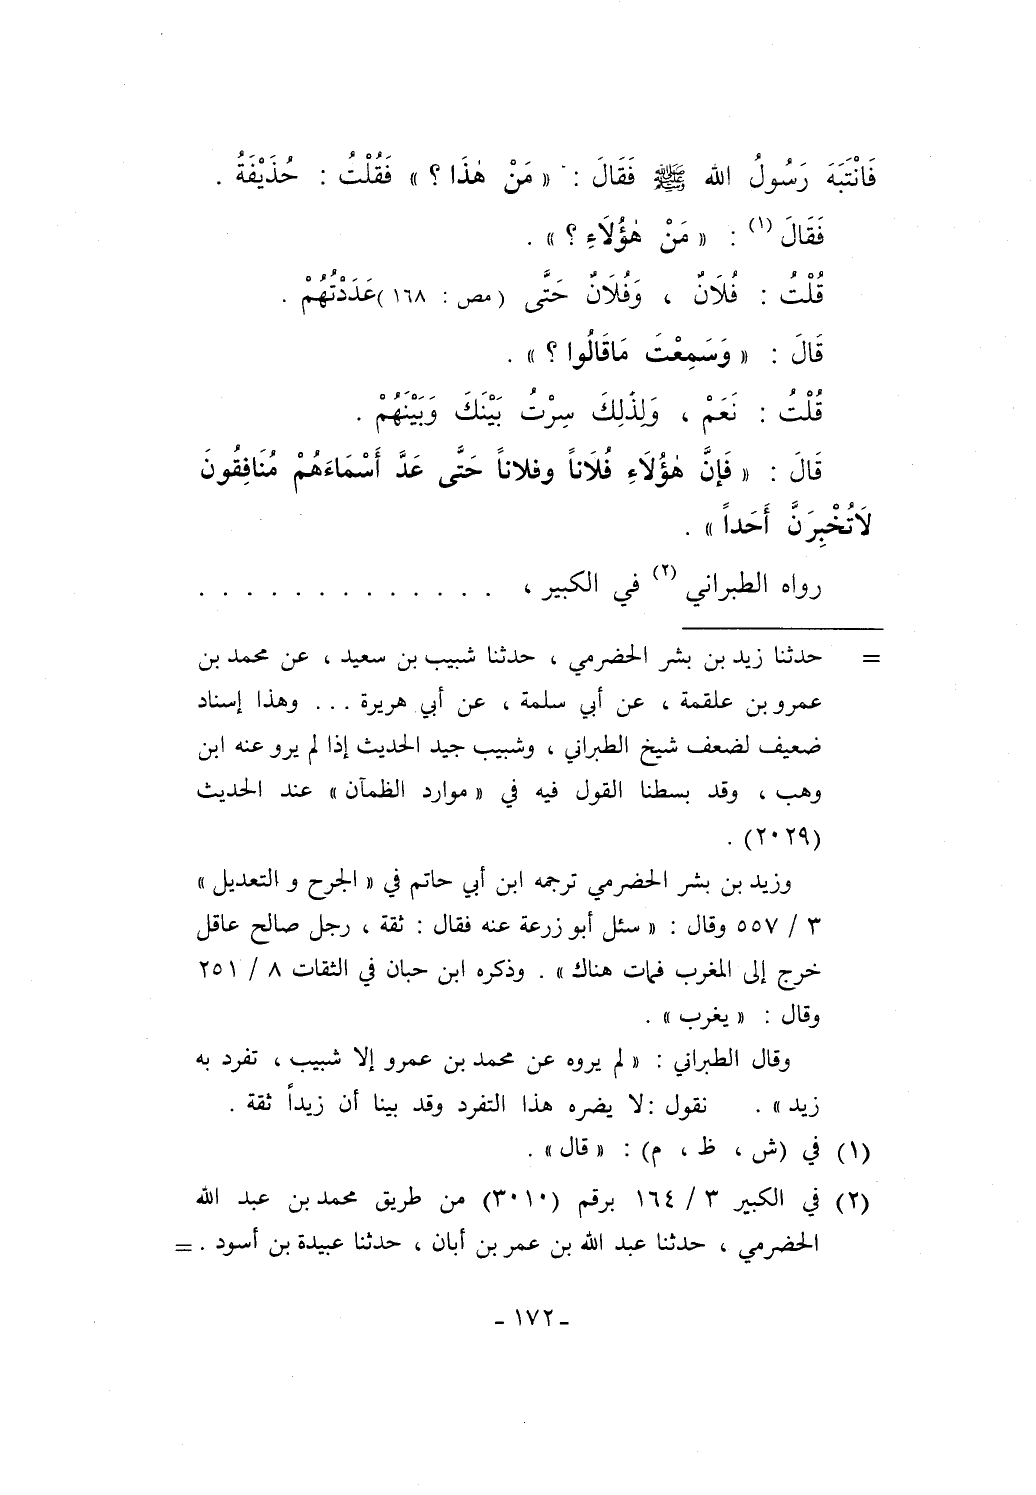 فَانْتَبَهَ رَسُولُ الله ﷺ فَقَالَ : « مَنْ هٰذَا ؟ » فَقُلْتُ : حُذَيْفَةُ .
فَقَالَ (١) : « مَنْ هٰؤُلَاءِ ؟ » .
قُلْتُ : فُلَانٌ ، وَفُلَانٌ حَتَّى ( مص : ١٦٨ )عَدَدْتُهُمْ .
قَالَ : « وَسَمِعْتَ مَاقَالُوا ؟ » .
قُلْتُ : نَعَمْ ، وَلِذٰلِكَ سِرْتُ بَيْنَكَ وَبَيْنَهُمْ .
قَالَ : « فَإِنَّ هٰؤُلَاءِ فُلَاناً وفلاناً حَتَّى عَدَّ أَسْمَاءَهُمْ مُنَافِقُونَ
لَاتُخْبِرَنَّ أَحَداً » .
رواه الطبراني (٢) في الكبير ، . . . . . . . . . . . . .
= حدثنا زيد بن بشر الحضرمي ، حدثنا شبيب بن سعيد ، عن محمد بن
عمرو بن علقمة ، عن أبي سلمة ، عن أبي هريرة ... وهذا إسناد
ضعيف لضعف شيخ الطبراني ، وشبيب جيد الحديث إذا لم يرو عنه ابن
وهب ، وقد بسطنا القول فيه في « موارد الظمآن » عند الحديث
(٢٠٢٩) .
وزيد بن بشر الحضرمي ترجمه ابن أبي حاتم في « الجرح و التعديل »
٣ / ٥٥٧ وقال : « سئل أبو زرعة عنه فقال : ثقة ، رجل صالح عاقل
خرج إلى المغرب فمات هناك » . وذكره ابن حبان في الثقات ٨ / ٢٥١
وقال : « يغرب » .
وقال الطبراني : « لم يروه عن محمد بن عمرو إلا شبيب ، تفرد به
زيد » . نقول :لا يضره هذا التفرد وقد بينا أن زيداً ثقة .
(١) في (ش ، ظ ، م) : « قال » .
(٢) في الكبير ٣ / ١٦٤ برقم (٣٠١٠) من طريق محمد بن عبد الله
الحضرمي ، حدثنا عبد الله بن عمر بن أبان ، حدثنا عبيدة بن أسود . =
ـ ١٧٢ ـ